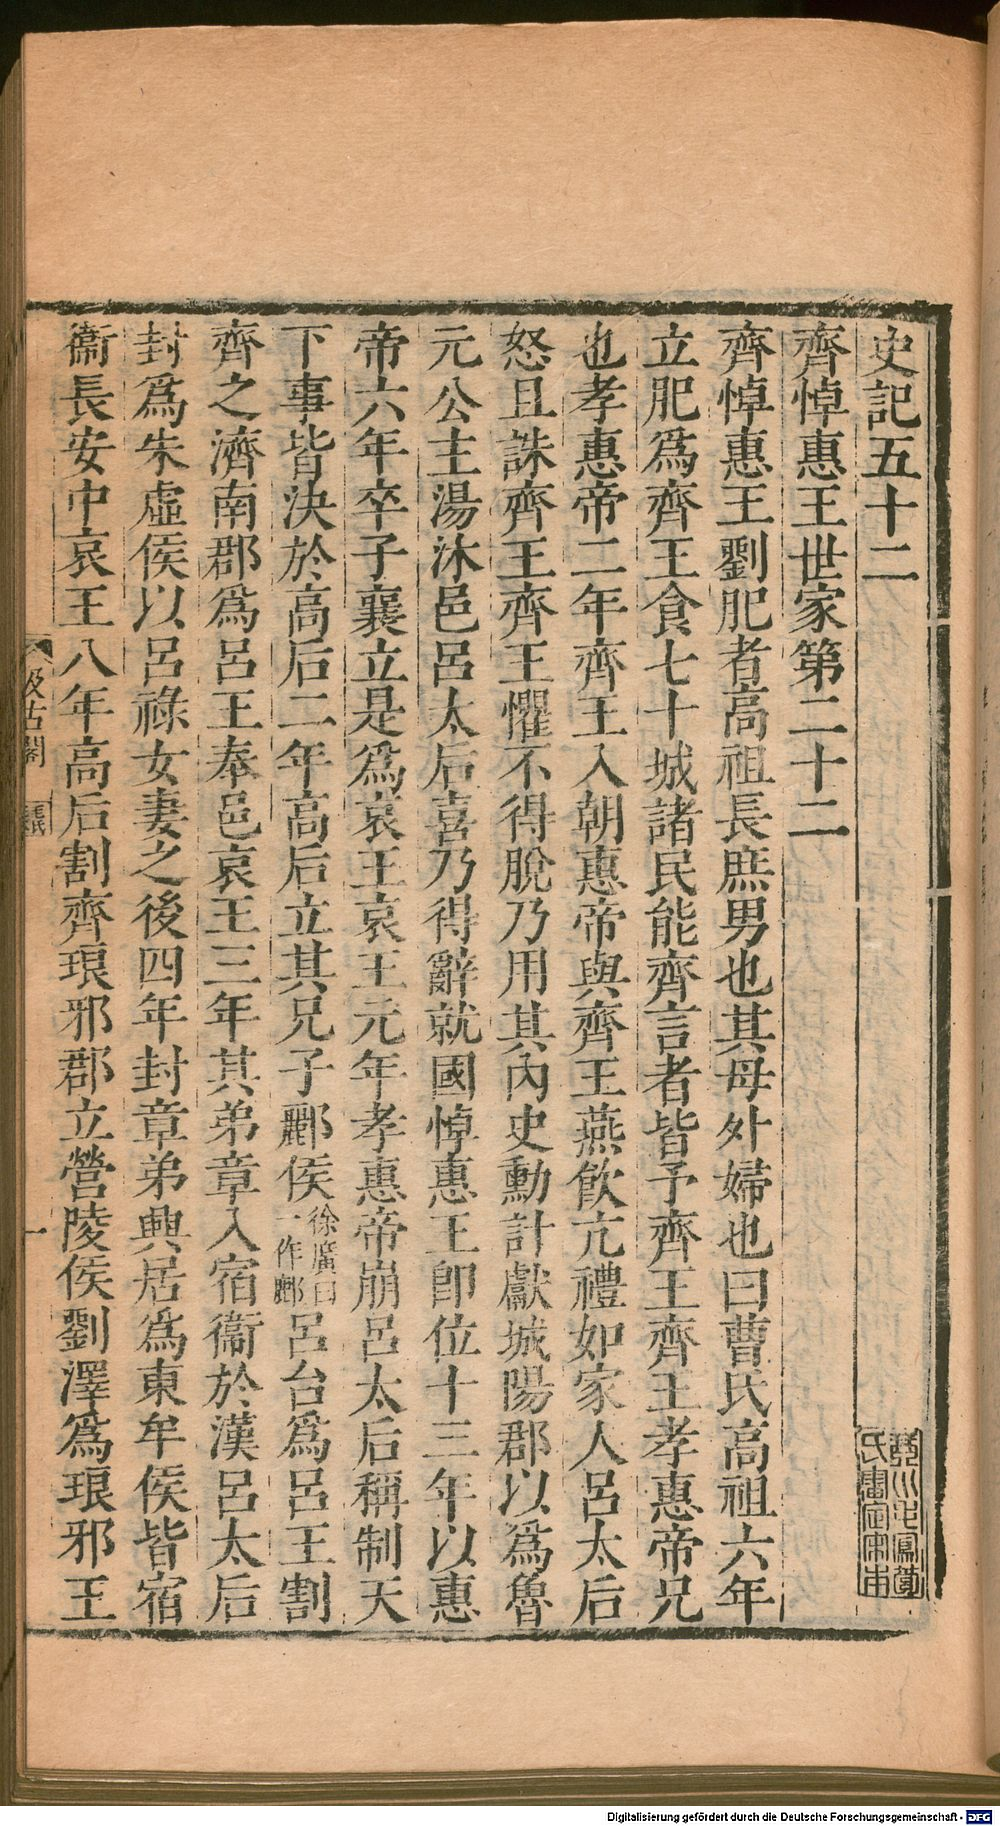 史記五十二
齊悼惠王世家第二十二
齊悼惠王劉肥者高祖長庶男也其母外婦也曰曹氏高祖六年
立肥爲齊王食七十城諸民能齊言者皆予齊王齊王孝惠帝兄
也孝惠帝二年齊王入朝惠帝與齊王燕飮亢禮如家人呂太后
怒且誅齊王齊王懼不得脫乃用其內史勳計獻城陽郡以爲魯
元公主湯沐邑呂太后喜乃得辭就國悼惠王卽位十三年以惠
帝六年卒子襄立是爲哀王哀王元年孝惠帝崩呂太后稱制天
下事皆決於高后二年高后立其兄子酈侯徐廣曰一作鄜呂台爲呂王割
齊之濟南郡爲呂王奉邑哀王三年其弟章入宿衞於漢呂太后
封爲朱虛侯以呂祿女妻之後四年封章弟興居爲東牟侯皆宿
衞長安中哀王八年高后割齊琅邪郡立營陵侯劉澤爲琅邪王
汲古閣
毛氏
一
Digitalisierung gefördert durch die Deutsche Forschungsgemeinschaft - DFG